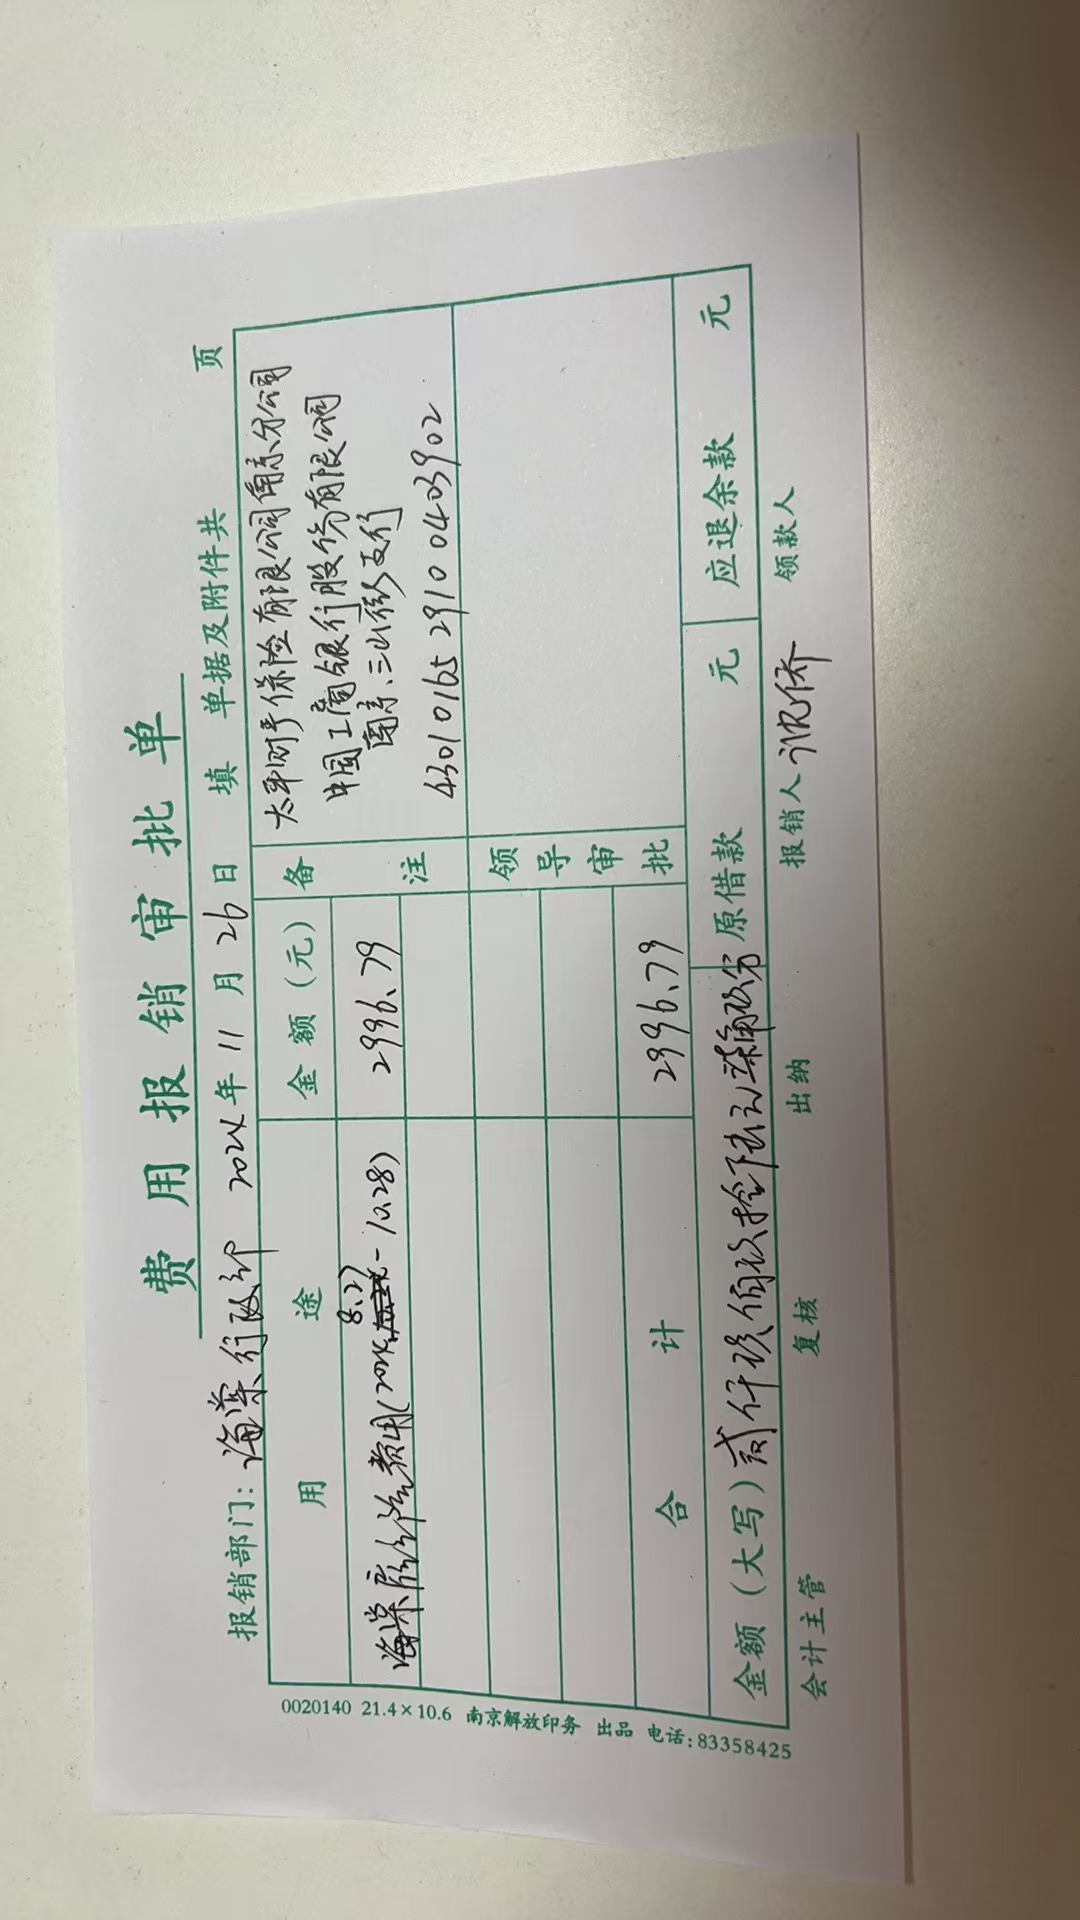 费用报销审批单
报销部门：海棠行政部 2024年11月26日 填 单据及附件共 页
用途 金额（元） 备注
太平财产保险有限公司南京分公司
中国工商银行股份有限公司
南京三山街支行
4301 0165 2910 0403902
8.27
海棠 费用(2024 - 10.28) 2996.79
领导审批
合计 2996.79
金额（大写）贰仟玖佰玖拾陆元柒角玖分 原借款 元 应退余款 元
会计主管 复核 出纳 报销人 领款人
0020140 21.4×10.6 南京解放印务 出品 电话：83358425